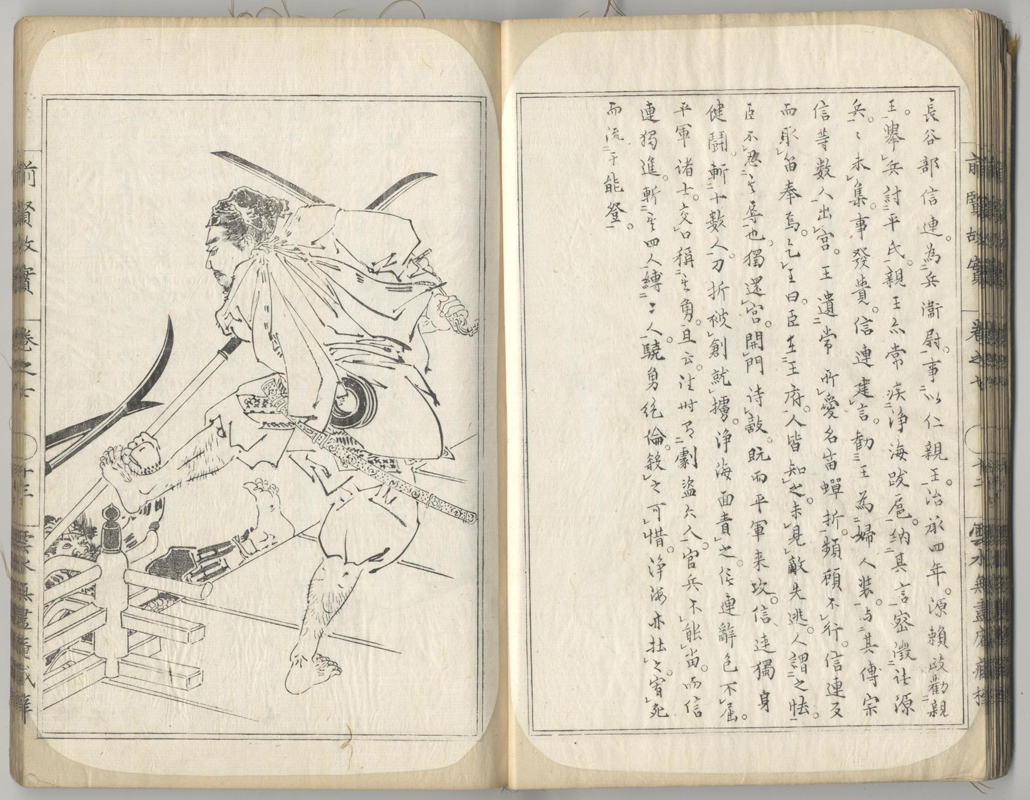 長谷部信連。為兵衞尉。事以仁親王。治承四年。源頼政勸親
王。擧兵討平氏。親王亦常疾浄海跋扈。納其言。密徴諸源
兵。兵未集事發覺。信連建言。勸王為婦人装。与其傅宗
信等數人出宮。王遺常所愛名笛蟬折。頻顧不行。信連反
而取笛奉焉。乞王曰。臣在王府。人皆知之。未見敵失逃。人謂之怯。
臣不忍其辱也。獨還宮。開門待敵。既而平軍来攻。信連獨身
健鬪。斬十數人。刀折被創就擄。浄海面責之。信連辭色不屈。
平軍諸士。交口稱其勇。且云。往時有劇盗六人。官兵不能當。而信
連獨進。斬其四人縛二人。驍勇絶倫。殺之可惜。浄海亦壮之。宥死
而流于能登。
前賢故實
卷之七
前賢故實 卷之七 雲水無盡庵藏梓